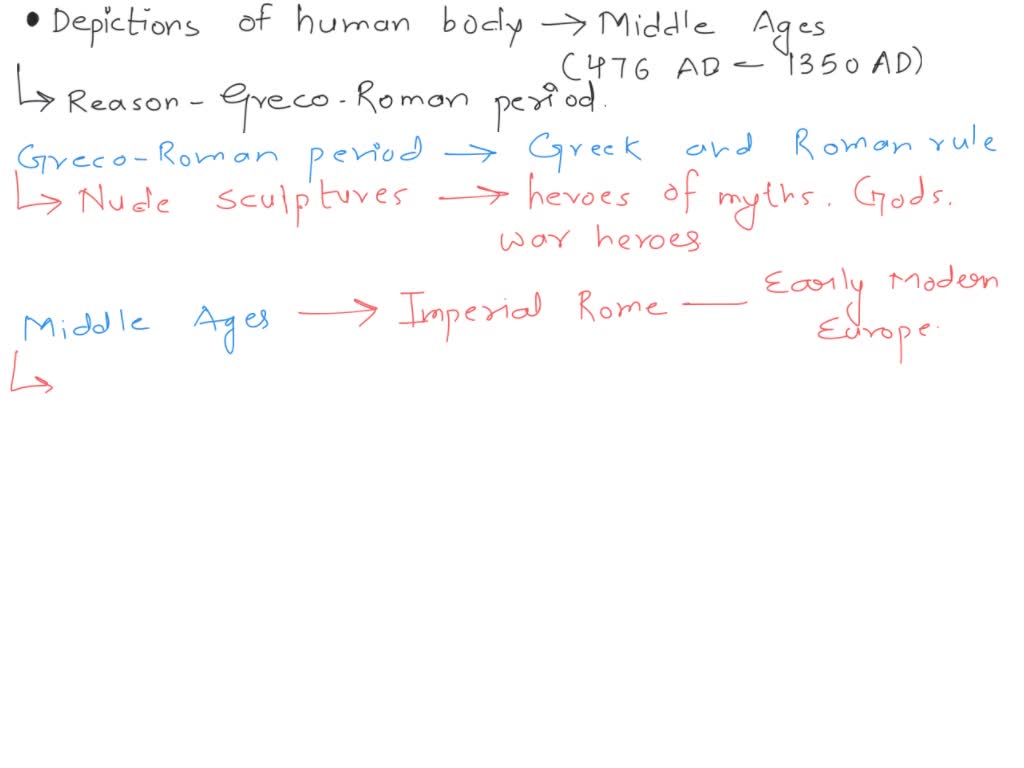 • Depictions of human body → Middle Ages
(476 AD - 1350 AD)
↳ Reason - Greco-Roman period.
Greco-Roman period → Greek and Roman rule
↳ Nude sculptures → heroes of myths. Gods.
war heroes
Middle Ages → Imperial Rome — Early Modern
Europe.
↳